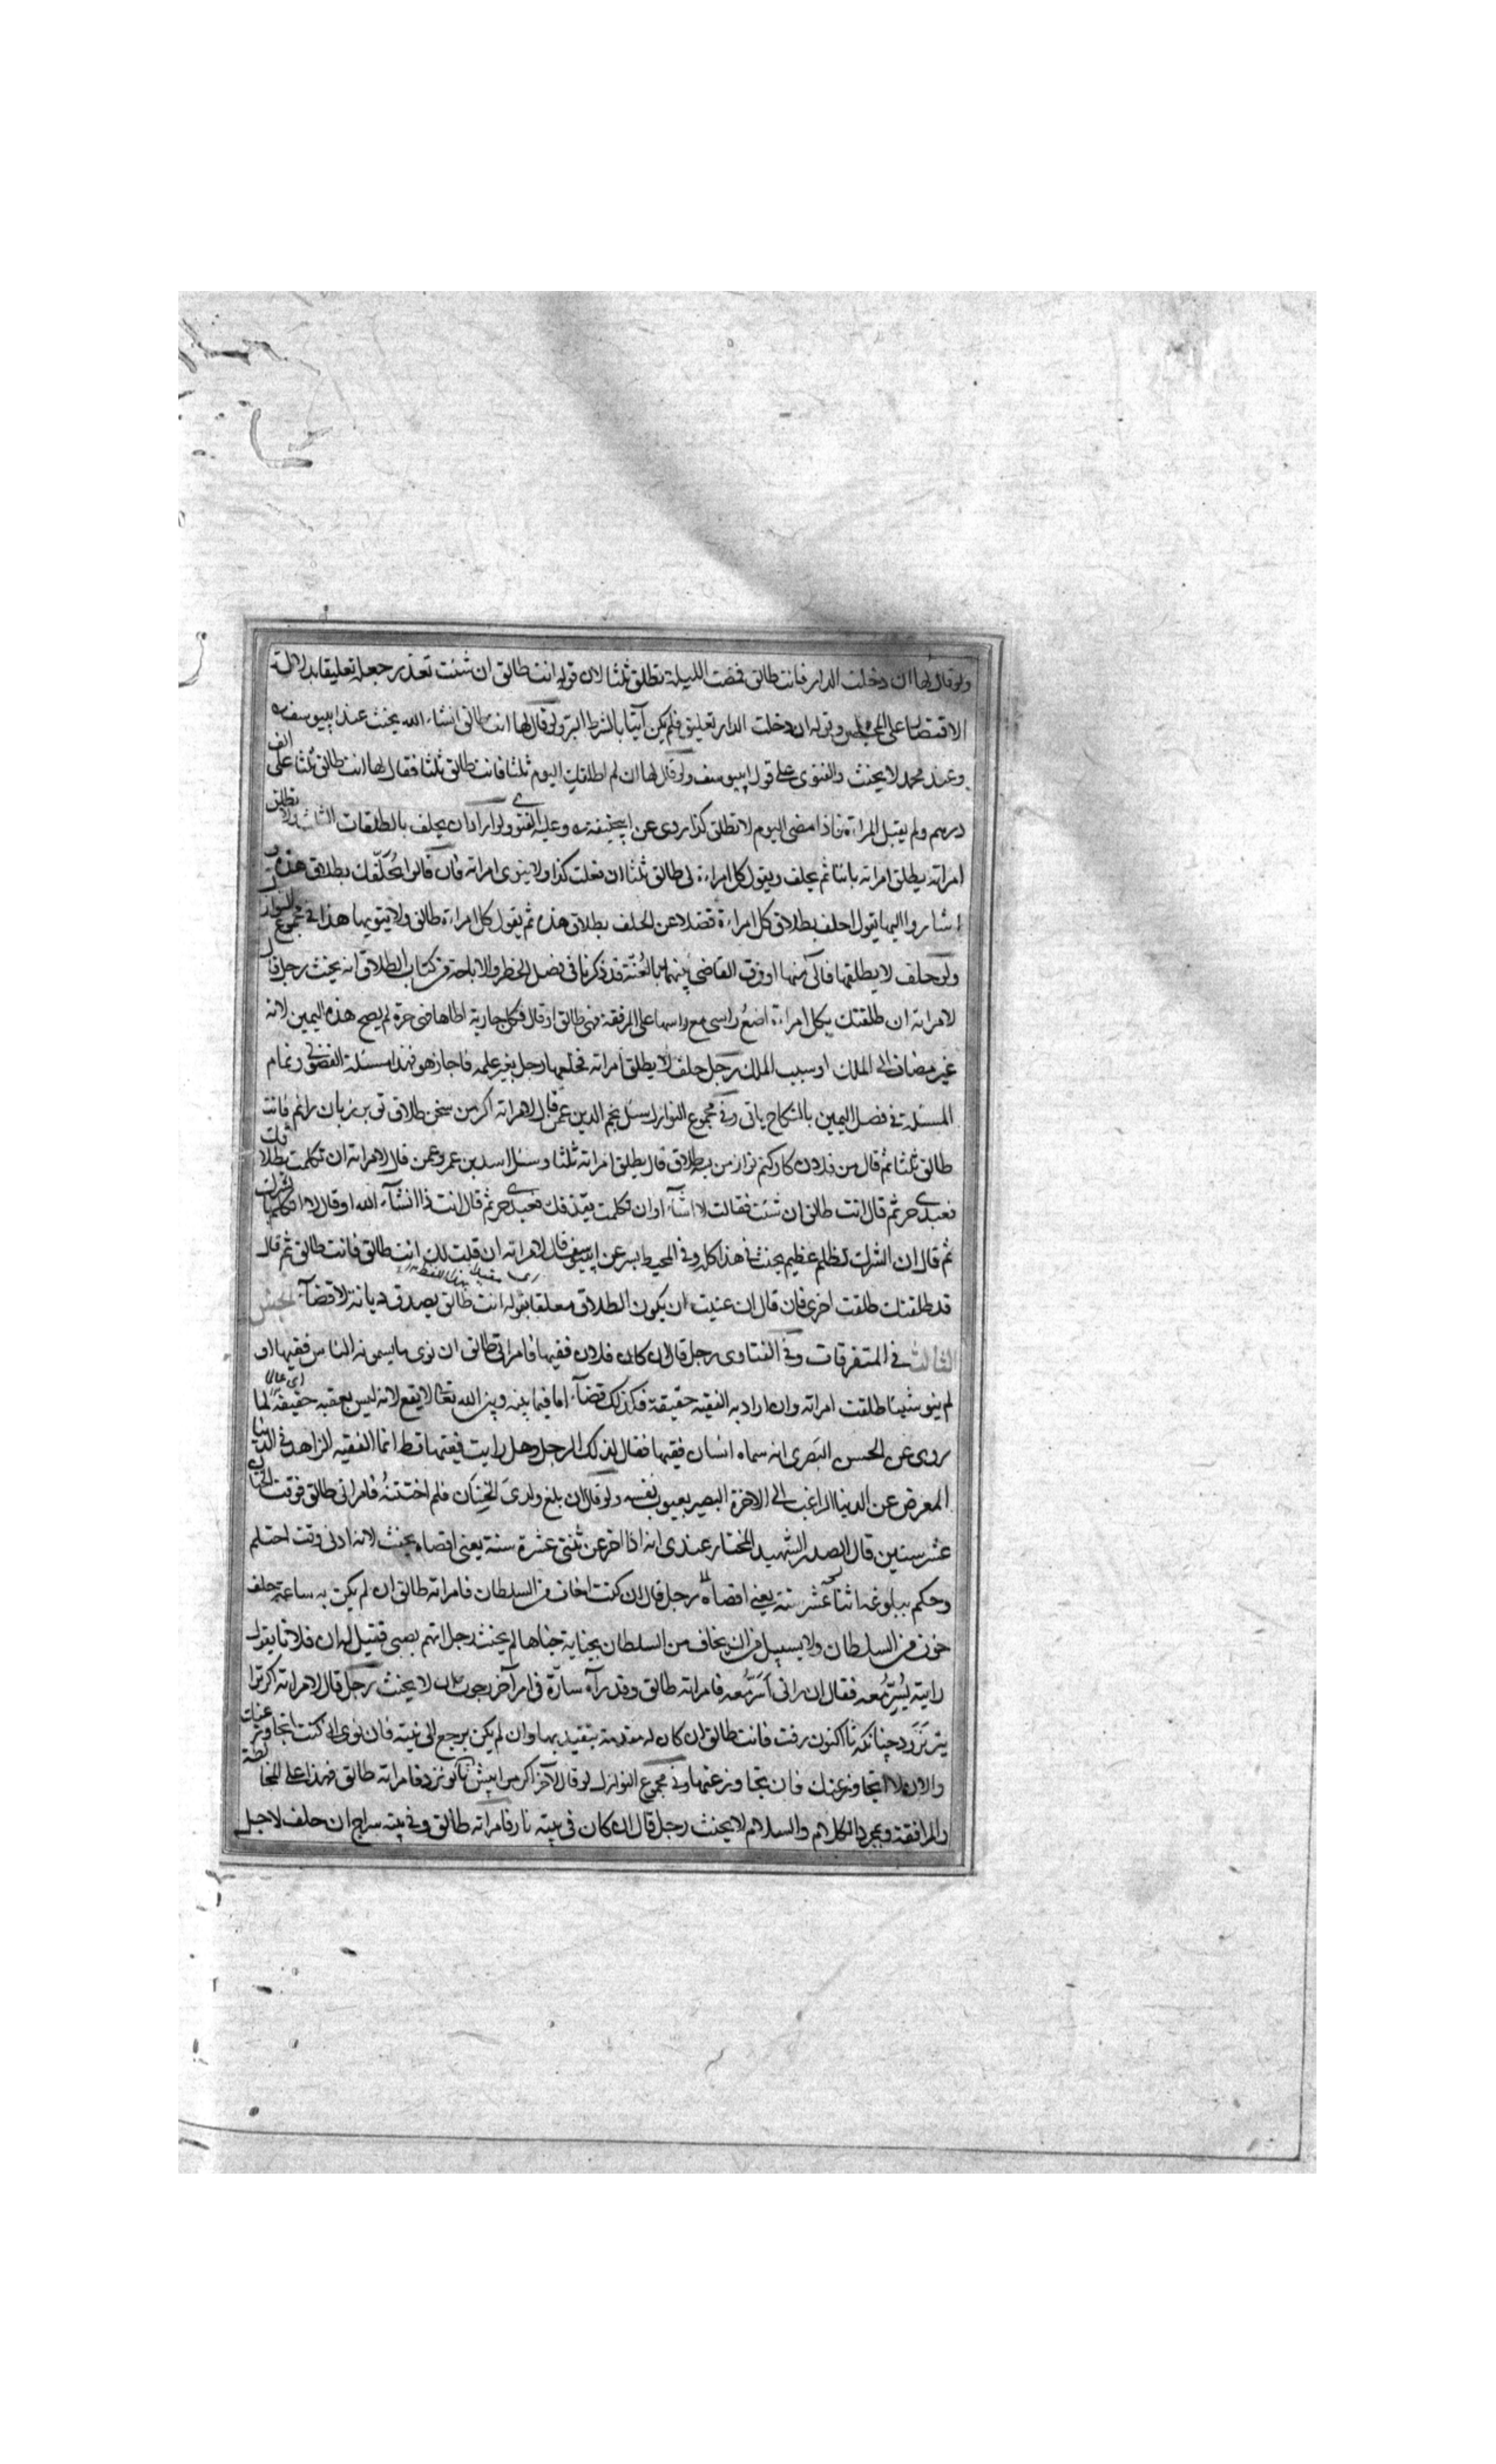 ولو قال لها ان دخلت الدار فانت طالق فمضت الليلة تطلق ثلثا لان قوله انت طالق ان شئت تعذر جعله تعليقا بدلالة
الاقتصار على المجلس وقوله ان دخلت الدار تعليق فلم يكن آتيا بالشرط البر ولو قال لها انت طالق انشاء الله يحنث عند ابيوسف ره
وعند محمد لا يحنث والفتوى على قول ابيوسف ولو قال لها ان لم اطلقك اليوم ثلثا فانت طالق ثلثا فقال لها انت طالق ثلثا على الف
درهم ولم يقبل المراءة فاذا مضى اليوم لا تطلق كذا روى عن ابيحنيفة ره وعليه الفتوى ولو اراد ان يحلف بالطلقات الثلث ولا تطلق
امراته يطلق امراته بائنا ثم يحلف ويقول كل امراءة لى طالق ثلثا ان فعلت كذا ولا ينوى امراته فان قالوا نحلفك بطلاق هذه و
اشاروا اليها يقول احلف بطلاق كل امراءة فضلا عن الحلف بطلاق هذه ثم يقول كل امراءة طالق ولا ينويها هذا فى مجموع النوازل
ولو حلف لا يطلقها فآلى منها او فرق القاضى بينهما بالعُنّة قد ذكرنا فى فصل الحظر والاباحة من كتاب الطلاق انه يحنث رجل قال
لامراته ان طلقتك فكل امراءة اضع راسى مع راسها على المرفقة فهى طالق او قال فكل جارية اطاها فهى حرة لم يصح هذه اليمين لانه
غير مضاف الى الملك او سبب الملك رجل حلف لا يطلق امراته فخلعها رجل بغير علمه فاجاز هو فهذا مسئلة الفضولى وتمام
المسئلة فى فصل اليمين بالنكاح ياتى وفى مجموع النوازل سئل نجم الدين عمن قال لامراته اكر من سخن طلاق تو بر زبان رانم فانت
طالق ثلثا ثم قال من فلان كار كنم تو از من بطلاق قال يطلق امراته ثلثا وسئل اسد بن عمرو عمن قال لامراته ان تكلمت بطلاقك
فعبدى حر ثم قال انت طالق ان شئت فقالت لا اشاء او ان تكلمت بقذفك فعبدى حر ثم قال انت ذا انشاء الله او قال لا اتكلم بالشرك
ثم قال ان الشرك لظلم عظيم يحنث فى هذا كله وفى المحيط ابن عن ابيوسف قال لامراته ان قلت لك انت طالق فانت طالق ثم قال
قد طلقتك طلقت اخرى فان قال ان عنيت ان يكون الطلاق معلقا بقوله انت طالق يصدق ديانة لا قضاء الجنس
الثالث فى المتفرقات وفى الفتاوى رجل قال ان كان فلان فقيها فامراتى طالق ان نوى ما يسمونه الناس فقيها او
لم ينو شيئا طلقت امراته وان اراد به الفقيه حقيقة فكذلك قضاء اما فيما بينه وبين الله تعالى لا يقع لانه ليس بفقيه حقيقة لما
روى عن الحسن البصرى انه سماه انسان فقيها فقال لذلك الرجل وهل رايت فقيها قط انما الفقيه الزاهد فى الدنيا
المعرض عن الدنيا الراغب الى الاخرة البصير بعيوب نفسه ولو قال ان بلغ ولدى الختان فلم اختنه فامراتى طالق فوقت الختان
عشر سنين قال الصدر الشهيد المختار عندى انه اذا اخر عن ثنتى عشرة سنة يعنى اقصاه يحنث لانه ادنى وقت احتلم
وحكم ببلوغه اثنا عشر سنة يعنى اقصاه رجل قال ان كنت اخاف من السلطان فامراته طالق ان لم يكن به ساعة حلف
خوف من السلطان ولا بسبيل من ان يخاف من السلطان بجناية جناها لم يحنث رجل اتهم بصبى فقيل له ان فلانا يقول
رايته يُسِرُّ معه فقال ان رانى اَسَرُّ معه فامراته طالق وقد رآه سارّه فى امر آخر لا يحنث رجل قال لامراته اكر ترا
بتر نزد چنانكه تا اكنون رفت فانت طالق ان كان له مقدمة يتقيد بها وان لم يكن يرجع الى نيته فان نوى انى كنت اتجاوز عنك
والان لا اتجاوز عنك فان تجاوز عنها وفى مجموع النوازل لو قال لآخر اكر من پيش تو فامراته طالق فهذا على المخالطة
والمرافقة وبمجرد الكلام والسلام لا يحنث رجل قال ان كان فى بيته نار فامراته طالق وفى بيته سراج ان حلف لاجل